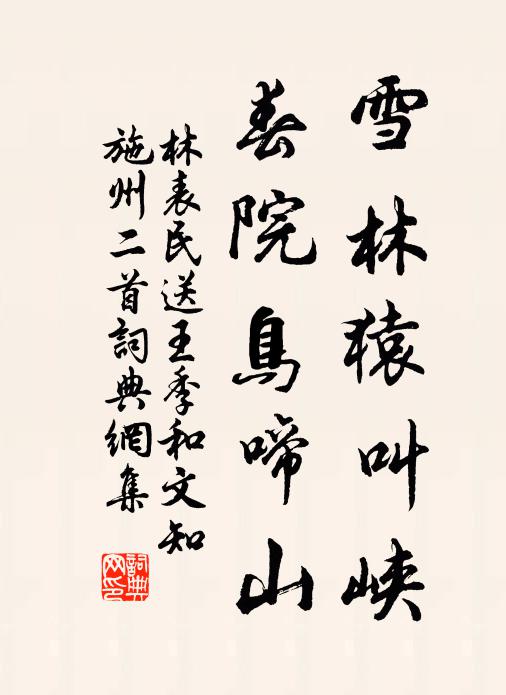 雪林猿叫峡
春院鳥啼山
林表民送王季和文知
施州二首詞典網集
詞典網印